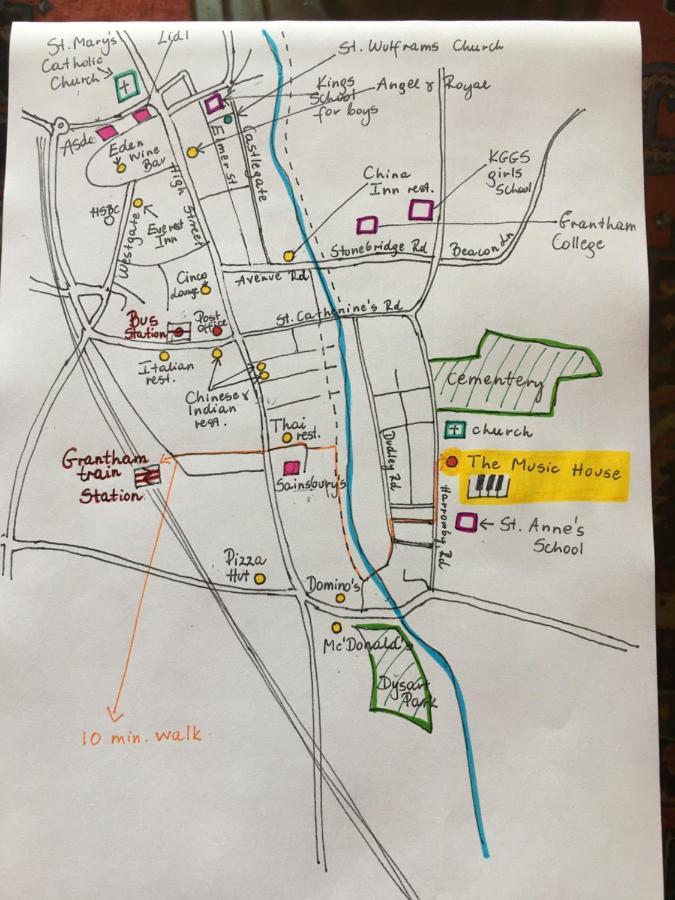 St. Mary's
Catholic
Church
Lidl
St. Wulframs Church
Kings
School
for boys
Angel & Royal
Asda
Eden
Wine
Bar
Elmer St
Castlegate
China
Inn rest.
KGGS
girls
School
High Street
HSBC
Westgate
Everest
Inn
Grantham
College
Stonebridge Rd
Beacon Ln
Avenue Rd
Cinco
Lounge
St. Catherine's Rd
Bus
Station
Post
Office
Italian
rest.
Chinese &
Indian
rest.
Cementery
Thai
rest.
church
Dudley Rd
Grantham
train
Station
Sainsbury's
The Music House
Harrowby Rd
St. Anne's
School
Pizza
Hut
Domino's
Mc'Donald's
Dysart
Park
10 min. walk